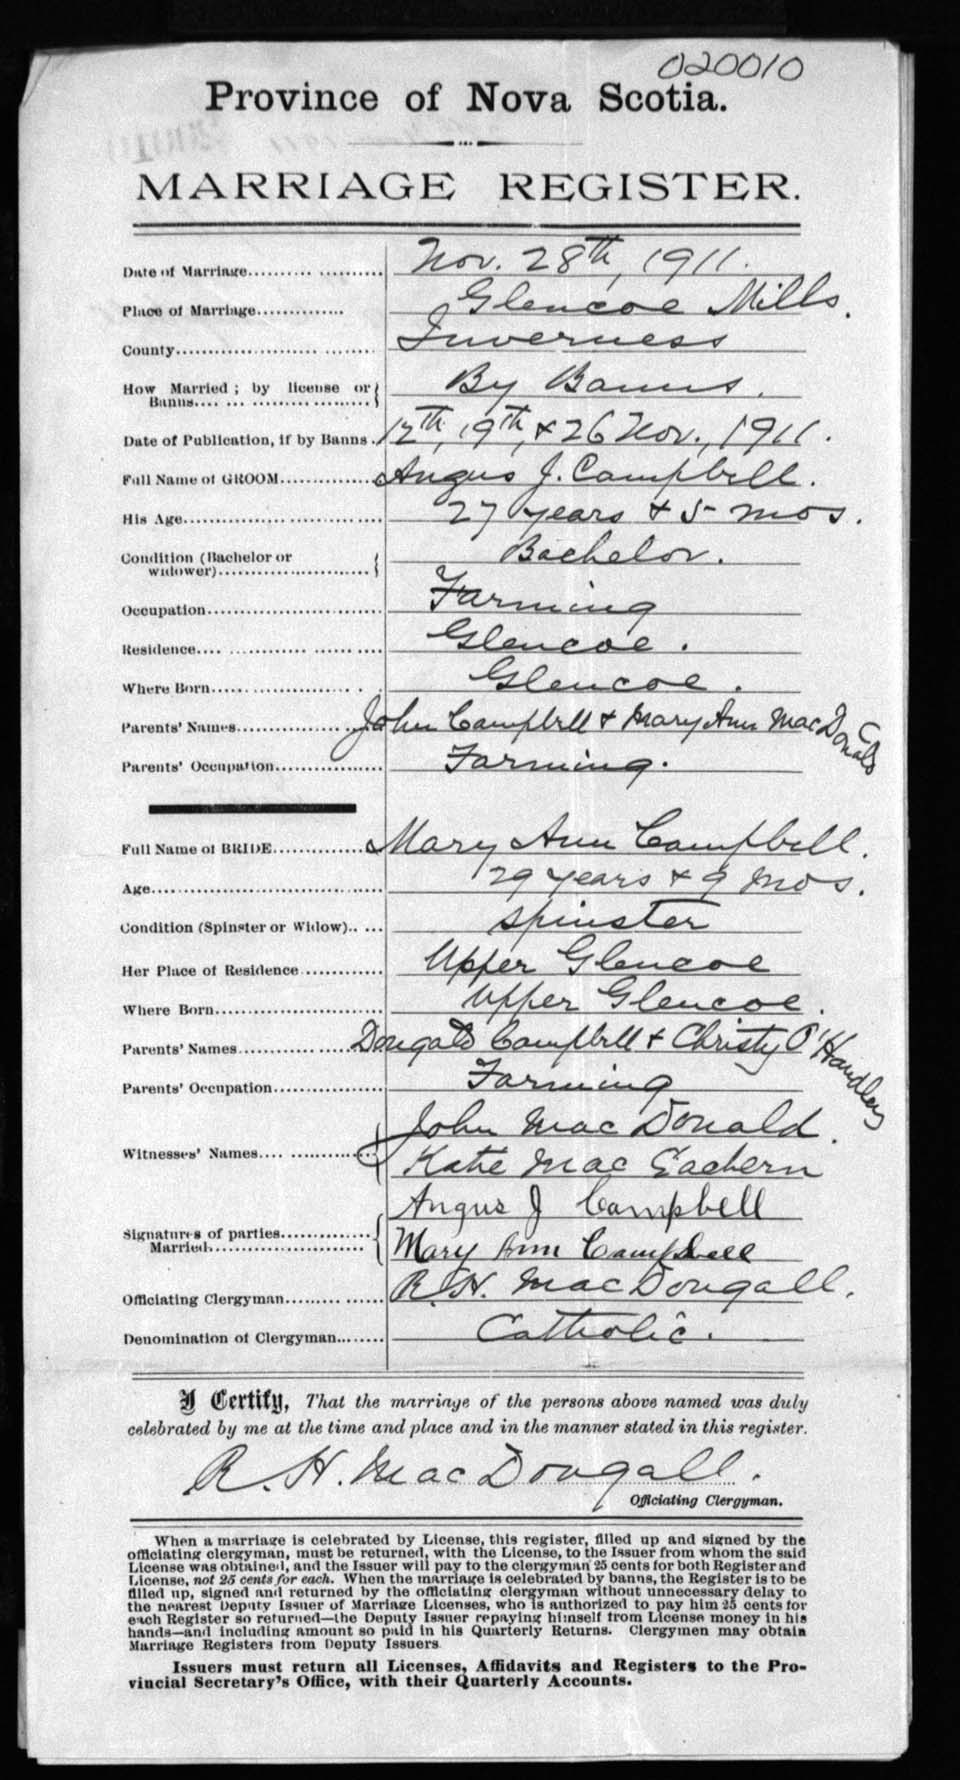 020010
Province of Nova Scotia.
MARRIAGE REGISTER.
Date of Marriage.......... Nov. 28th, 1911.
Place of Marriage.............. Glencoe Mills.
County.............................. Inverness
How Married ; by license or
Banns.... ... .................... By Banns.
Date of Publication, if by Banns . 12th, 19th, & 26 Nov., 1911.
Full Name of GROOM............... Angus J. Campbell.
His Age.............................. 27 years & 5 mos.
Condition (Bachelor or
widower)........................ Bachelor.
Occupation.......................... Farming
Residence.... ............... ......... Glencoe.
Where Born...................... . . Glencoe.
Parents' Names..................... John Campbell & Mary Ann MacDonald
Parents' Occupation................ Farming.
Full Name of BRIDE............... Mary Ann Campbell.
Age.................................. 29 years & 9 mos.
Condition (Spinster or Widow).. .... Spinster
Her Place of Residence............ Upper Glencoe
Where Born........................ Upper Glencoe.
Parents' Names..................... Dougald Campbell & Christy O'Handley
Parents' Occupation................ Farming
Witnesses' Names.... ............... John MacDonald.
Katie MacEachern
Signatures of parties............... Angus J Campbell
Married........................ Mary Ann Campbell
Officiating Clergyman......... ...... R. H. MacDougall.
Denomination of Clergyman......... Catholic.
I Certify, That the marriage of the persons above named was duly
celebrated by me at the time and place and in the manner stated in this register.
R. H. MacDougall.
Officiating Clergyman.
When a marriage is celebrated by License, this register, filled up and signed by the
officiating clergyman, must be returned, with the License, to the Issuer from whom the said
License was obtained, and the Issuer will pay to the clergyman 25 cents for both Register and
License, not 25 cents for each. When the marriage is celebrated by banns, the Register is to be
filled up, signed and returned by the officiating clergyman without unnecessary delay to
the nearest Deputy Issuer of Marriage Licenses, who is authorized to pay him 25 cents for
each Register so returned—the Deputy Issuer repaying himself from License money in his
hands—and including amount so paid in his Quarterly Returns. Clergymen may obtain
Marriage Registers from Deputy Issuers
Issuers must return all Licenses, Affidavits and Registers to the Pro-
vincial Secretary's Office, with their Quarterly Accounts.